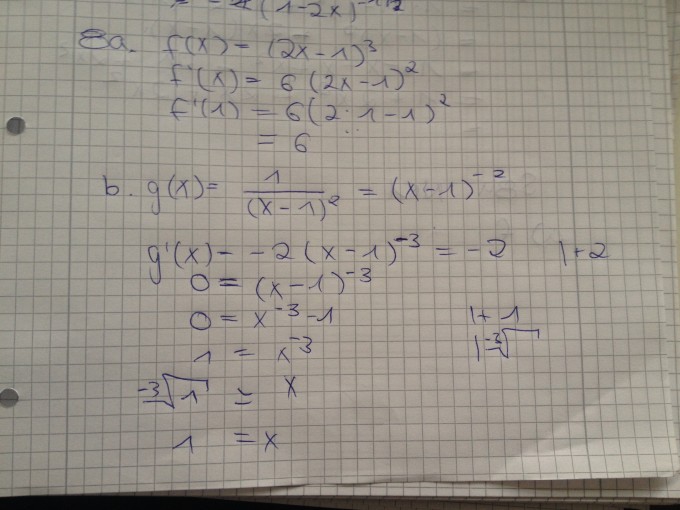 = -4(1-2x)^-1/2
8a. f(x) = (2x-1)^3
f'(x) = 6(2x-1)^2
f'(1) = 6(2·1-1)^2
= 6
b. g(x) = 1/(x-1)^2 = (x-1)^-2
g'(x) = -2(x-1)^-3 = -2 |+2
0 = (x-1)^-3
0 = x^-3-1 |+1
1 = x^-3 |-3√
-3√1 = x
1 = x